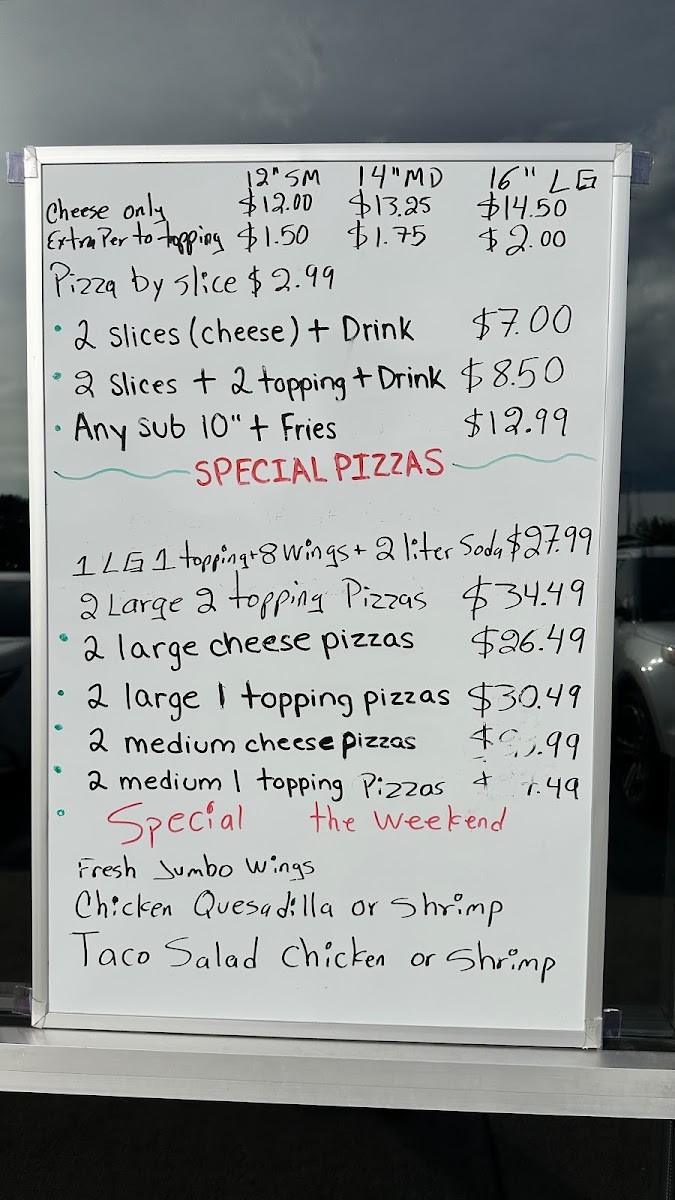 12" SM 14" MD 16" LG
Cheese only $12.00 $13.25 $14.50
Extra Per to topping $1.50 $1.75 $2.00
Pizza by slice $2.99
• 2 slices (cheese) + Drink $7.00
• 2 Slices + 2 topping + Drink $8.50
• Any sub 10" + Fries $12.99
SPECIAL PIZZAS
1 LG 1 topping + 8 wings + 2 liter Soda $27.99
2 Large 2 topping Pizzas $34.49
• 2 large cheese pizzas $26.49
• 2 large 1 topping pizzas $30.49
• 2 medium cheese pizzas
• 2 medium 1 topping Pizzas
• Special the weekend
Fresh Jumbo Wings
Chicken Quesadilla or Shrimp
Taco Salad Chicken or Shrimp